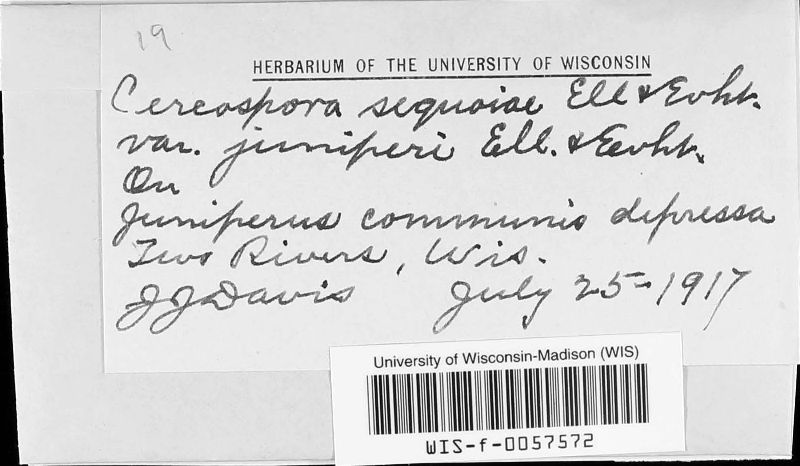 19
HERBARIUM OF THE UNIVERSITY OF WISCONSIN
Cercospora sequoiae Ell & Evht.
var. juniperi Ell. & Evht.
On
Juniperus communis depressa
Two Rivers, Wis.
JJDavis July 25-1917
University of Wisconsin-Madison (WIS)
WIS-f-0057572